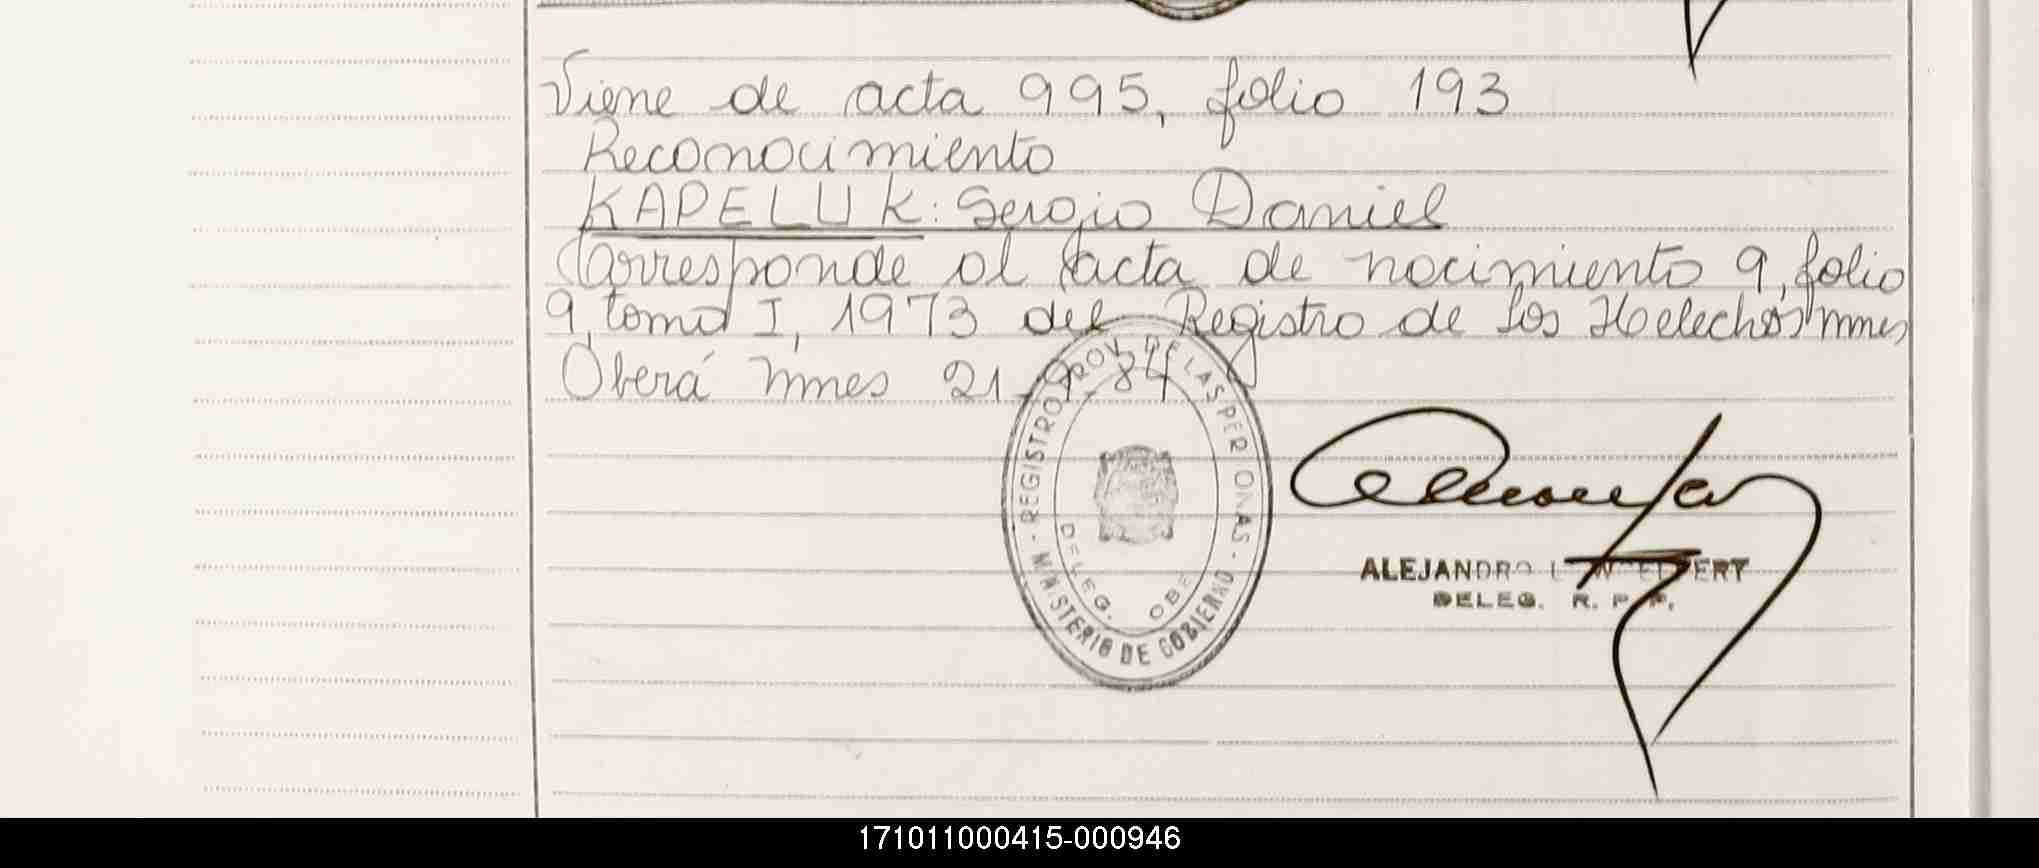 Viene de acta 995, folio 193
Reconocimiento
KAPELUK: Sergio Daniel
Corresponde al acta de nacimiento 9, folio
9, tomo I, 1973 del Registro de Los Helechos Mnes
Oberá Mnes 21-9-84
· REGISTRO PROV. DE LAS PERSONAS ·
MINISTERIO DE GOBIERNO
DELEG. OBE
ALEJANDRO
DELEG. R. P. P.
171011000415-000946